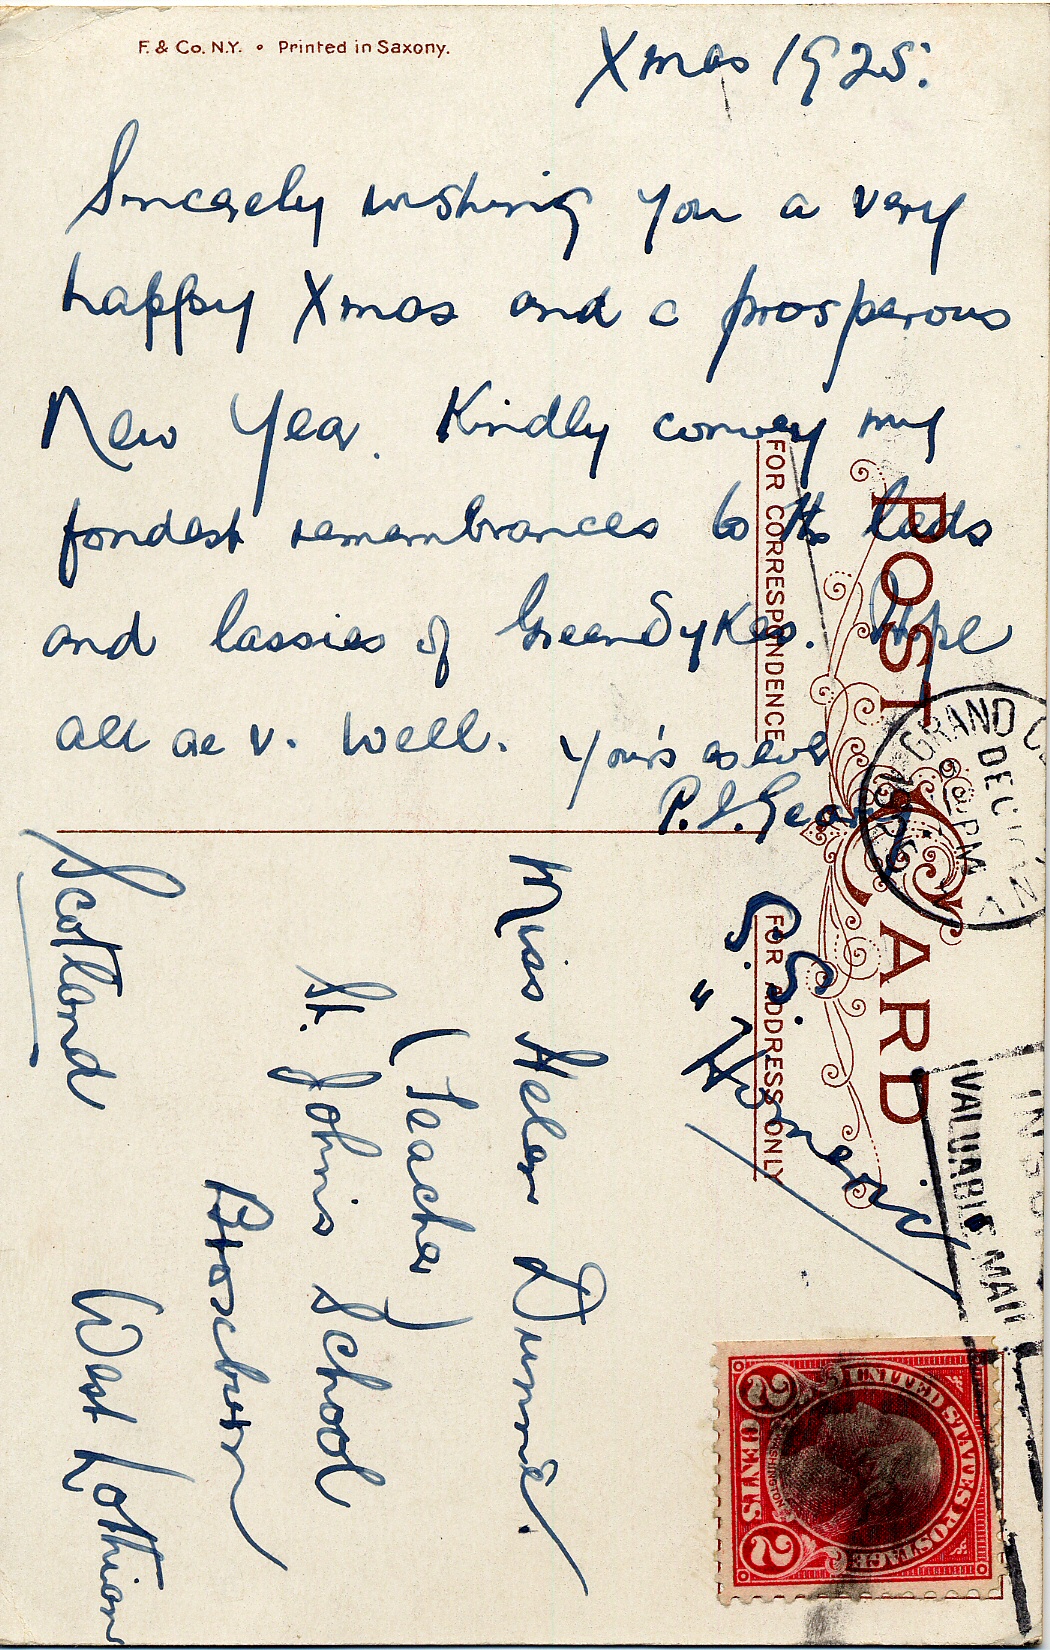 F. & Co. N.Y. • Printed in Saxony.
Xmas 1925.
Sincerely wishing you a very
happy Xmas and a prosperous
New Year. Kindly convey my
fondest remembrances to the lads
and lassies of GreenDykes. Hope
all are v. well. Your's as ever
P.J. Geary
S.S.
"Homeric"
POST CARD
FOR CORRESPONDENCE
FOR ADDRESS ONLY
GRAND
DEC
PM
N Y
VALUABLE MAIL
UNITED STATES POSTAGE
WASHINGTON
2 CENTS 2
Miss Helen Dunne
(Teacher)
St. John's School
Broxburn
West Lothian
Scotland